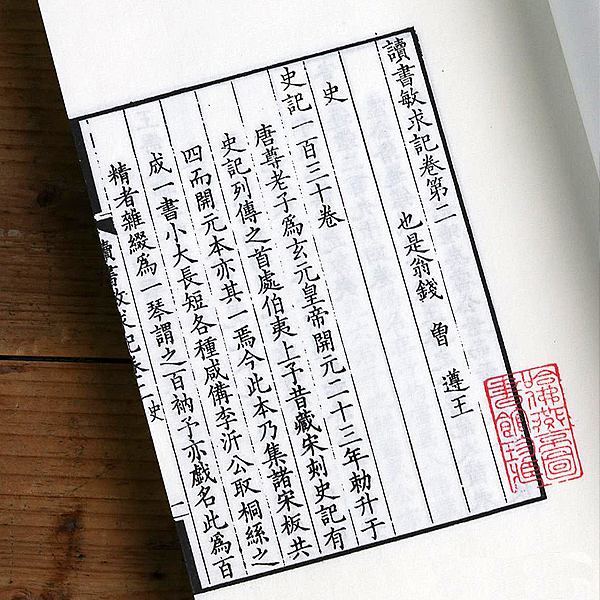 讀書敏求記卷第二
也是翁錢　曾　遵王
史
史記一百三十卷
唐尊老子爲玄元皇帝開元二十三年勅升于
史記列傳之首處伯夷上予昔藏宋刻史記有
四而開元本亦其一焉今此本乃集諸宋板共
成一書小大長短各種咸備李沂公取桐絲之
精者雜綴爲一琴謂之百衲予亦戲名此爲百
讀書敏求記卷二 史
一
哈佛燕京圖
書館珍藏